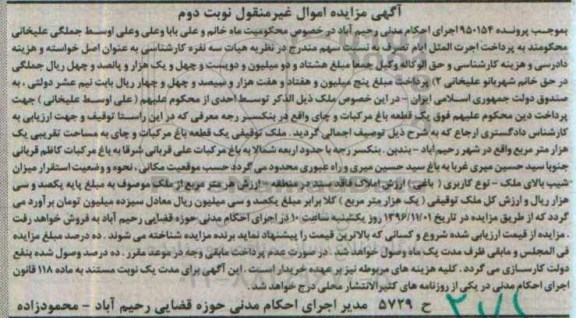 آگهی مزایده اموال غیرمنقول نوبت دوم
بموجب پرونده ۹۵۰۱۵۴ اجرای احکام مدنی رحیم آباد در خصوص محکومیت ماه خانم و علی بابا وعلی وعلی اوسط جملگی علیخانی
محکومند به پرداخت اجرت المثل ایام تصرف به نسبت سهم مندرج در نظریه هیات سه نفره کارشناسی به عنوان اصل خواسته و هزینه
دادرسی و هزینه کارشناسی و حق الوکاله وکیل جمعا مبلغ هشتاد و دو میلیون و دویست و چهل و یک هزار و پانصد و چهل ریال جملگی
در حق خانم شهربانو علیخانی ۲) پرداخت مبلغ پنج میلیون و هفتاد و هفت هزار و سیصد و چهل و چهار ریال بابت نیم عشر دولتی ، به
صندوق دولت جمهوری اسلامی ایران – در این خصوص ملک ذیل الذکر توسط احدی از محکوم علیهم (علی اوسط علیخانی ) جهت
پرداخت دین محکوم علیهم فوق یک قطعه باغ مرکبات و چای واقع در بنکسر رجه معرفی که در این راستا توقیف و جهت ارزیابی به
کارشناس دادگستری ارجاع که به شرح ذیل توصیف اجمالی گردید . ملک توقیفی یک قطعه باغ مرکبات و چای به مساحت تقریبی یک
هزار متر مربع واقع در شهر رحیم آباد – بندبن . بنکسر رجه با حدود اربعه شمالا به باغ مرکبات علی قربانی شرقا به باغ مرکبات کاظم قربانی
جنوبا سید حسین میری غربا به باغ سید حسین میری و راه عبوری محدود می گردد حسب موقعیت مکانی ، نحوه و وضعیت استقرار میزان
شیب بالای ملک – نوع کاربری ( باغی ) ارزش املاک فاقد سند در منطقه – ارزش هر متر مربع از ملک موصوف به مبلغ پایه یکصد و سی
هزار ریال و ارزش کل ملک توقیفی ( یک هزار متر مربع ) کلا برابر مبلغ یکصد و سی میلیون ریال معادل سیزده میلیون تومان برآورد می
گردد که از طریق مزایده در تاریخ ۱۳۹۶/۱۲/۰۱ روز یکشنبه ساعت ۱۰ در اجرای احکام مدنی حوزه قضایی رحیم آباد به فروش خواهد رفت
. مزایده از قیمت ارزیابی شده شروع و کسانی که بالاترین قیمت را پیشنهاد نماید برنده مزایده شناخته می شوند . ده درصد مبلغ مزایده
فی المجلس و مابقی ظرف مدت یک ماه وصول خواهد شد . در صورت عدم پرداخت مابقی وجه در موعد مقرر . ده درصد وصول شده بنفع
دولت کارسازی می گردد . کلیه هزینه های مربوطه نیز بر عهده خریدار است . این آگهی برای مدت یک نوبت مستند به ماده ۱۱۸ قانون
اجرای احکام مدنی در یکی از روزنامه های کثیرالانتشار محلی درج خواهد شد .
ح ۵۷۲۹ مدیر اجرای احکام مدنی حوزه قضایی رحیم آباد – محمودزاده